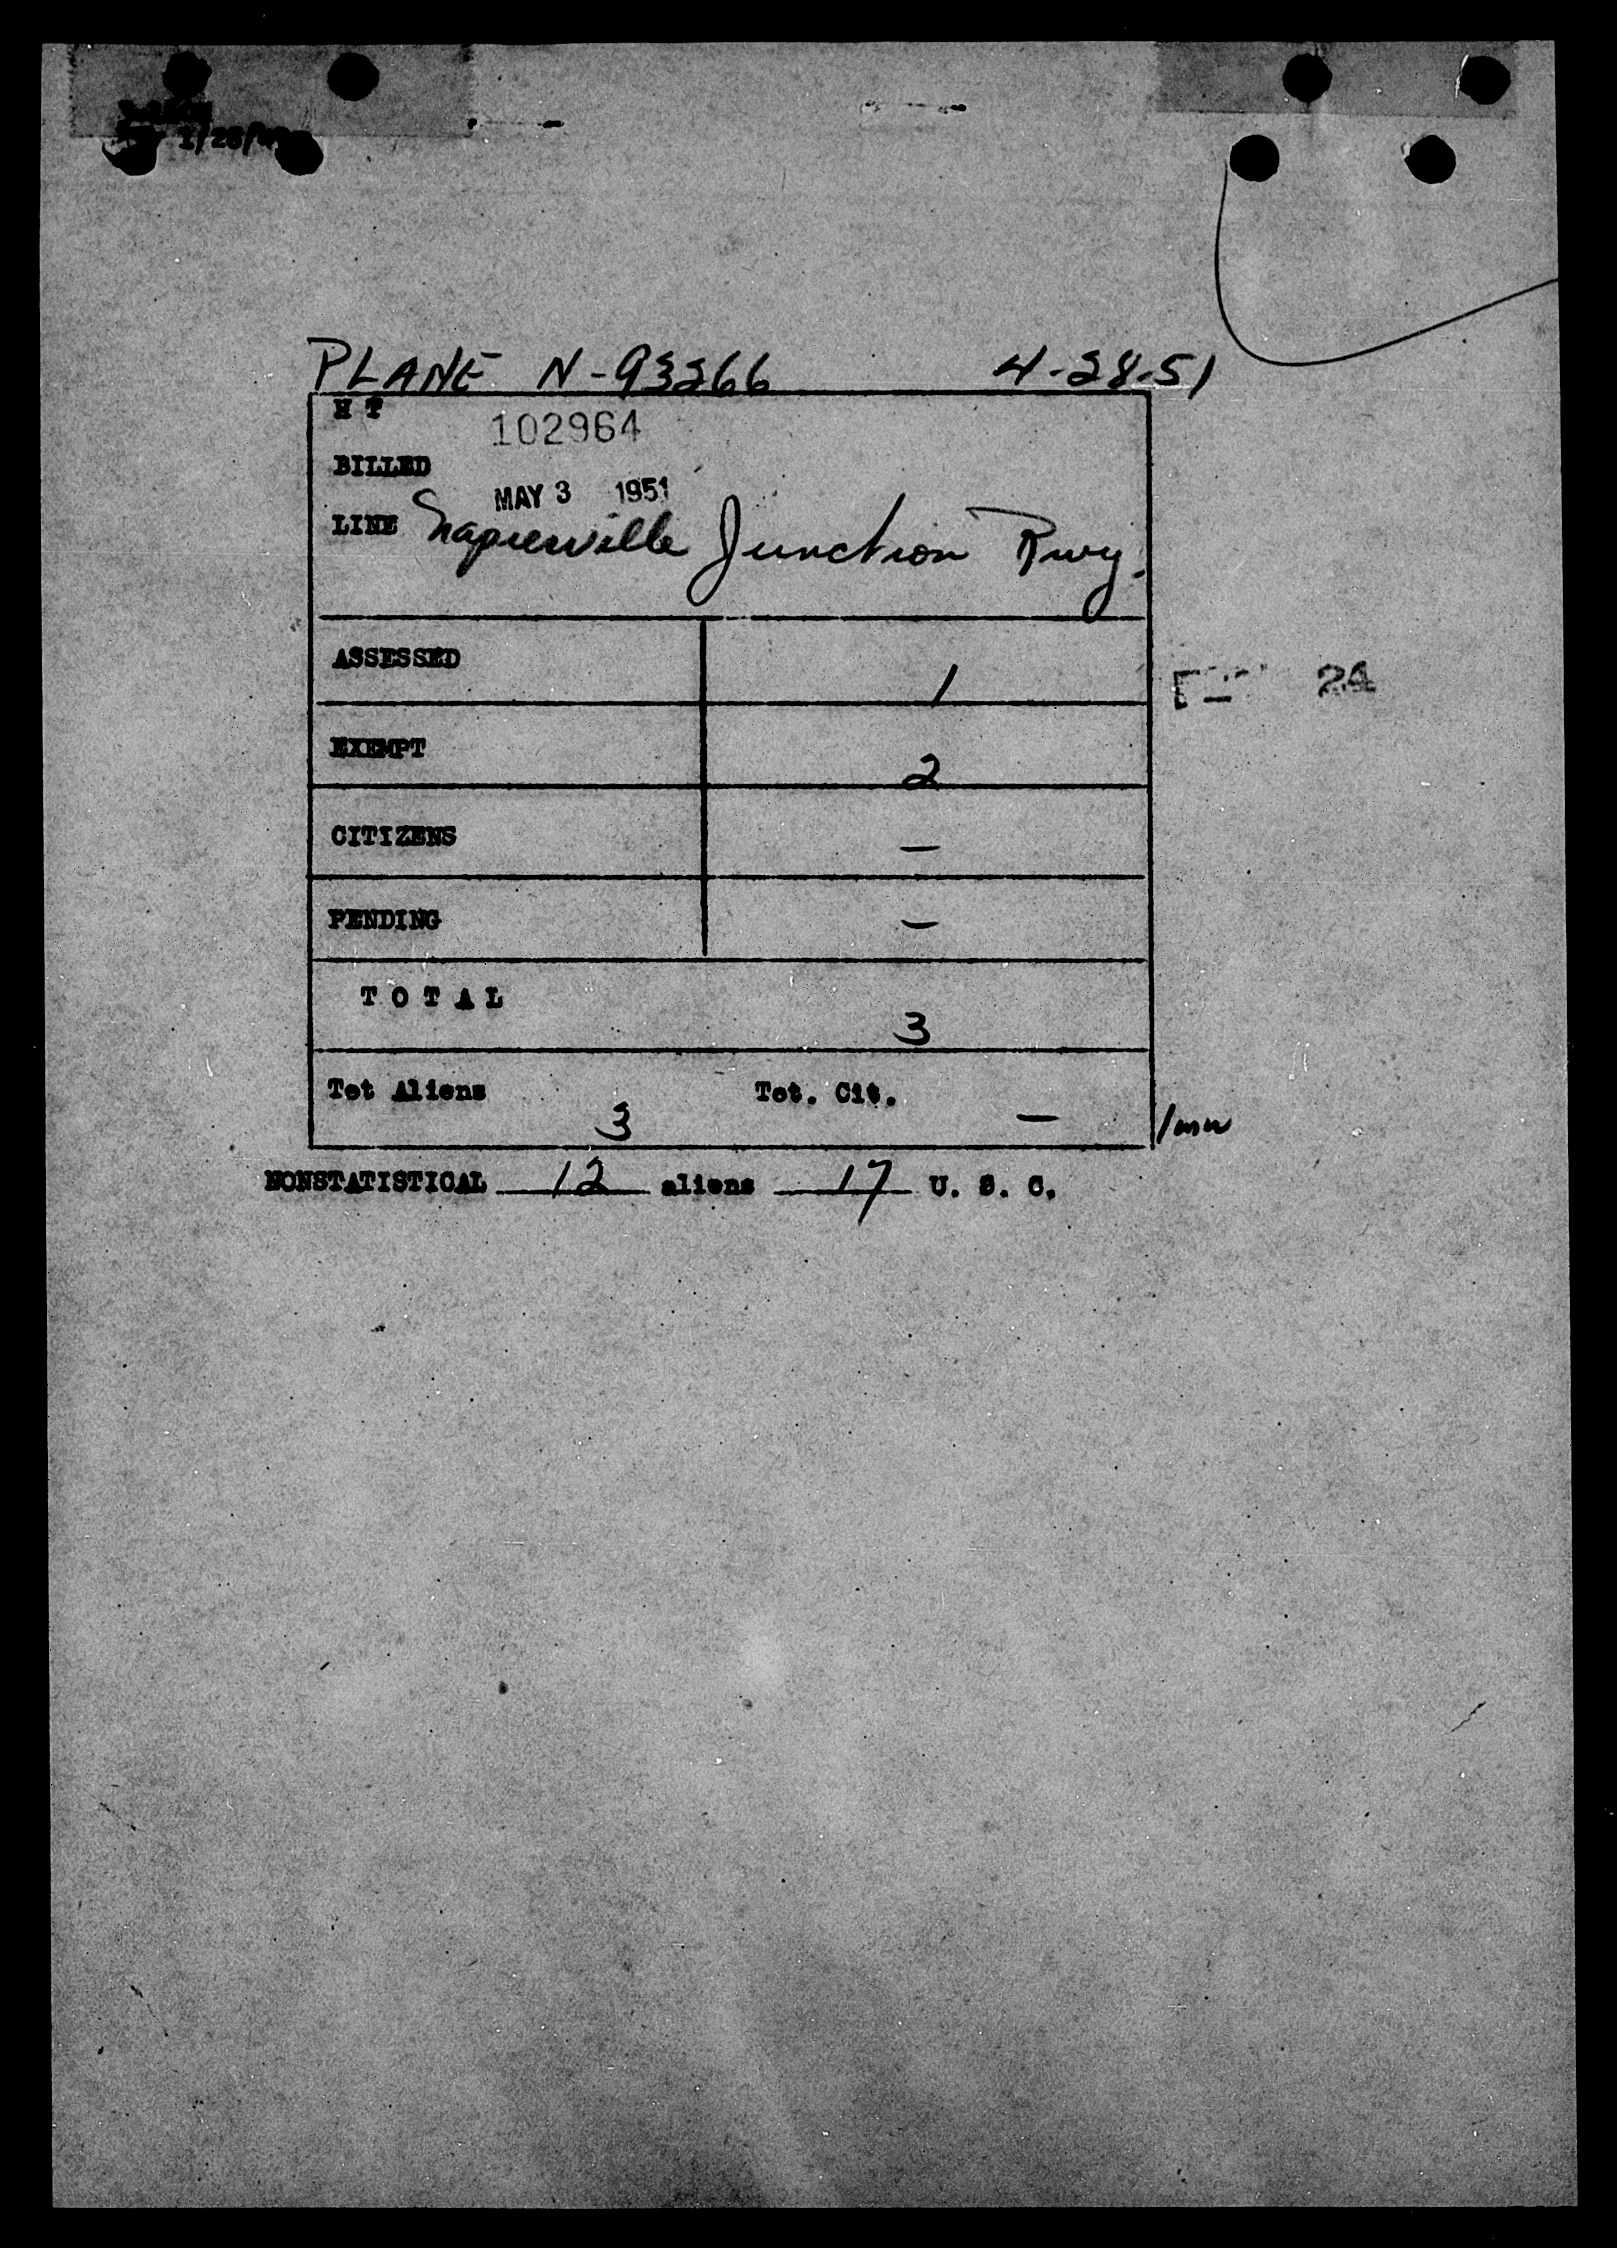 1/28/
PLANE N-93266 4-28-51
H T 102964
BILLED
MAY 3 1951
LINE Napierville Junction Rwy.
ASSESSED 1
24
EXEMPT 2
CITIZENS —
PENDING —
T O T A L 3
Tot Aliens 3 Tot. Cit. —
/mw
NONSTATISTICAL 12 aliens 17 U. S. C.